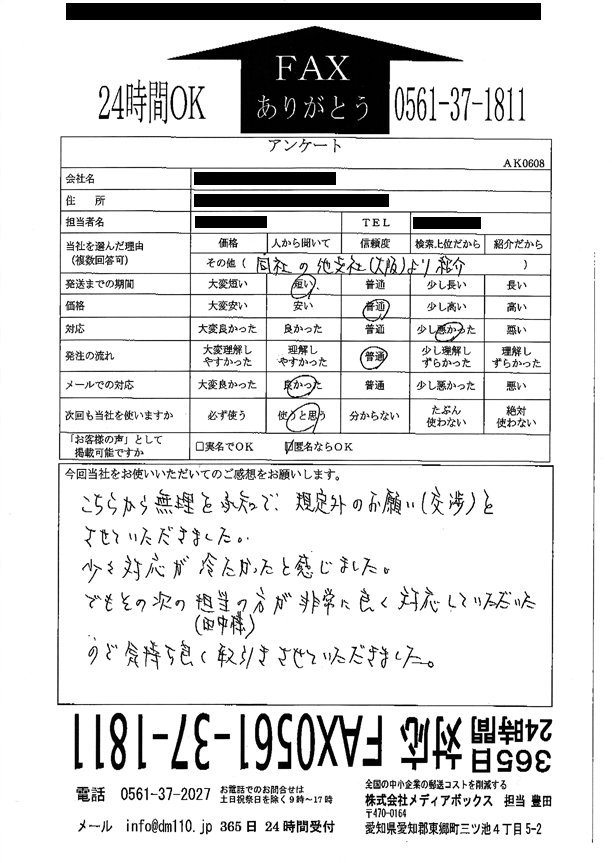 24時間OK
FAX
ありがとう
0561-37-1811
アンケート
AK0608
会社名
住 所
担当者名 TEL
当社を選んだ理由
(複数回答可)
価格 人から聞いて 信頼度 検索上位だから 紹介だから
その他( 同社の他支社(大阪)より紹介 )
発送までの期間 大変短い 短い 普通 少し長い 長い
価格 大変安い 安い 普通 少し高い 高い
対応 大変良かった 良かった 普通 少し悪かった 悪い
発注の流れ 大変理解しやすかった 理解しやすかった 普通 少し理解しずらかった 理解しずらかった
メールでの対応 大変良かった 良かった 普通 少し悪かった 悪い
次回も当社を使いますか 必ず使う 使うと思う 分からない たぶん使わない 絶対使わない
「お客様の声」として
掲載可能ですか
□実名でOK ☑匿名ならOK
今回当社をお使いいただいてのご感想をお願いします。
こちらから無理を承知で、規定外のお願い(交渉)を
させていただきました。
少々対応が冷たかったと感じました。
でもその次の担当の方が非常に良く対応していただいた
(田中様)
ので気持ち良く取引きさせていただきました。
365日
24時間
対応 FAX0561-37-1811
電話 0561-37-2027
お電話でのお問合せは
土日祝祭日を除く9時~17時
メール info@dm110.jp 365日24時間受付
全国の中小企業の郵送コストを削減する
株式会社メディアボックス 担当 豊田
〒470-0164
愛知県愛知郡東郷町三ツ池4丁目5-2